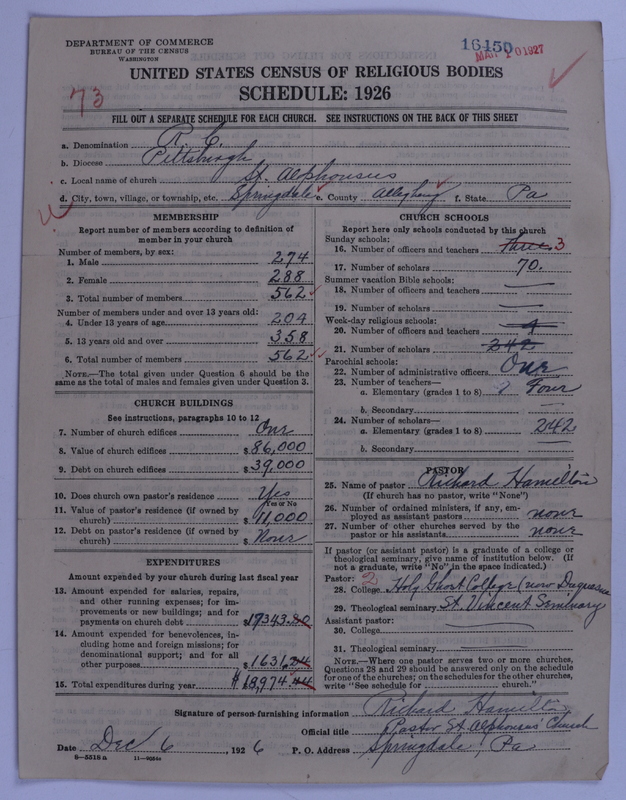 DEPARTMENT OF COMMERCE
BUREAU OF THE CENSUS
WASHINGTON
16450
MAR 10 1927
UNITED STATES CENSUS OF RELIGIOUS BODIES
SCHEDULE: 1926
73
FILL OUT A SEPARATE SCHEDULE FOR EACH CHURCH. SEE INSTRUCTIONS ON THE BACK OF THIS SHEET
a. Denomination R. C.
b. Diocese Pittsburgh
c. Local name of church St. Alphonsus
d. City, town, village, or township, etc. Springdale e. County Allegheny f. State Pa
MEMBERSHIP
Report number of members according to definition of
member in your church
Number of members, by sex:
1. Male 274
2. Female 288
3. Total number of members 562
Number of members under and over 13 years old:
4. Under 13 years of age 204
5. 13 years old and over 358
6. Total number of members 562
NOTE.—The total given under Question 6 should be the
same as the total of males and females given under Question 3.
CHURCH BUILDINGS
See instructions, paragraphs 10 to 12
7. Number of church edifices One
8. Value of church edifices $ 86,000
9. Debt on church edifices $ 39,000
10. Does church own pastor's residence Yes
Yes or No
11. Value of pastor's residence (if owned by
church) $ 11,000
12. Debt on pastor's residence (if owned by
church) $ None
EXPENDITURES
Amount expended by your church during last fiscal year
13. Amount expended for salaries, repairs,
and other running expenses; for im-
provements or new buildings; and for
payments on church debt $ 17343.80
14. Amount expended for benevolences, in-
cluding home and foreign missions; for
denominational support; and for all
other purposes $ 1631.24
15. Total expenditures during year $ 18,974.44
CHURCH SCHOOLS
Report here only schools conducted by this church
Sunday schools:
16. Number of officers and teachers three 3
17. Number of scholars 70.
Summer vacation Bible schools:
18. Number of officers and teachers —
19. Number of scholars —
Week-day religious schools:
20. Number of officers and teachers 4
21. Number of scholars 242
Parochial schools:
22. Number of administrative officers One
23. Number of teachers—
a. Elementary (grades 1 to 8) Four
b. Secondary —
24. Number of scholars—
a. Elementary (grades 1 to 8) 242
b. Secondary
PASTOR
25. Name of pastor Richard Hamilton
(If church has no pastor, write "None")
26. Number of ordained ministers, if any, em-
ployed as assistant pastors none
27. Number of other churches served by the
pastor or his assistants none
If pastor (or assistant pastor) is a graduate of a college or
theological seminary, give name of institution below. (If
not a graduate, write "No" in the space indicated.)
Pastor: 2
28. College Holy Ghost College (now Duquesne
29. Theological seminary St. Vincent Seminary
Assistant pastor:
30. College —
31. Theological seminary —
NOTE.—Where one pastor serves two or more churches,
Questions 28 and 29 should be answered only on the schedule
for one of the churches; on the schedules for the other churches,
write "See schedule for church."
Signature of person furnishing information Richard Hamilton
Official title Pastor St Alphonsus' Church
Date Dec 6, 1926 P. O. Address Springdale, Pa
8—5318 a 11—9034a